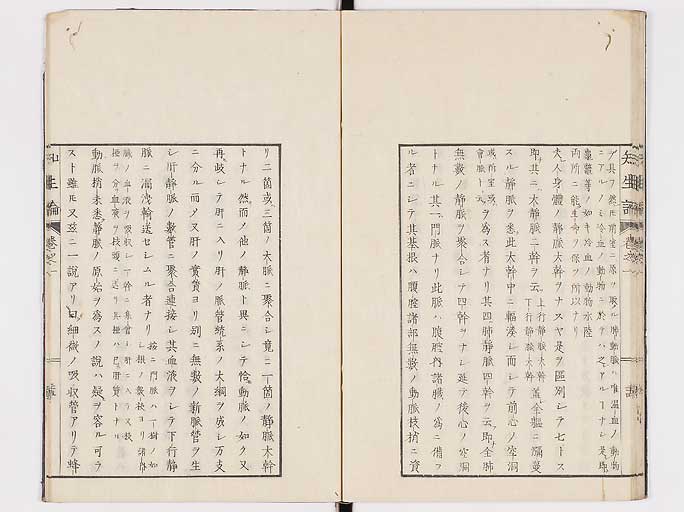 知生論
ニアルノミ冷血ノ動物ニ於テハ之アルヿナシ是即
龜鼈等ノ如キ冷血ノ動物水陸
両所ニ能生命ヲ保ツ所以ナリ
夫人身體ノ静脈大幹ヲナスヤ是ヲ區別シテ七トス
即其二大静脈二幹ヲ云 上行静脈大幹
下行静脈大幹
蓋全軀ニ滿蔓
スル静脈ヲ悉此大幹中ニ輻湊シ而シテ前心ノ空洞
或所室或
會脈ト云
ヲ為ス者ナリ其四肺静脈四幹ヲ云即全肺
無數ノ静脈ヲ聚合シテ四幹ヲナシ延テ後心ノ空洞
トナル其一門脈ナリ此脈ハ腹腔内諸臓ノ為ニ備フ
ル者ニシテ其基根ハ腹腔諸部無數ノ動脈枝梢ニ資
リ二箇或三箇ノ大脈ニ聚合シ竟ニ一箇ノ静脈大幹
トナル然而ノ他ノ静脈ト異ニシテ恰動脈ノ如ク又
再岐シテ肝ニ入リ肝ノ脈管統系ノ大綱ヲ成シ万支
ニ分ル而メ又肝ノ實質ヨリ別ニ無數ノ新脈管ヲ生
シ肝静脈ノ數管ニ聚合連接シ其血液ヲシテ下行静
脈ニ瀉瀝輸送セシムル者ナリ
按ニ門脈ハ一樹ノ如
シ根ノ數枝ヨリ諸部
動脈梢末悉静脈ノ原始ヲ為スノ説ハ疑ヲ容ル可ラ
スト雖𪜈又茲ニ一説アリ曰細微ノ吸収管アリテ蜂
知生論